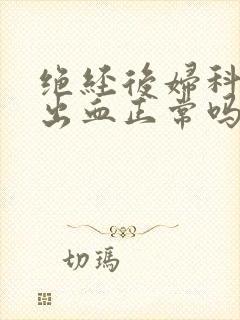 绝经後婦科
出血正常吗
切瑪